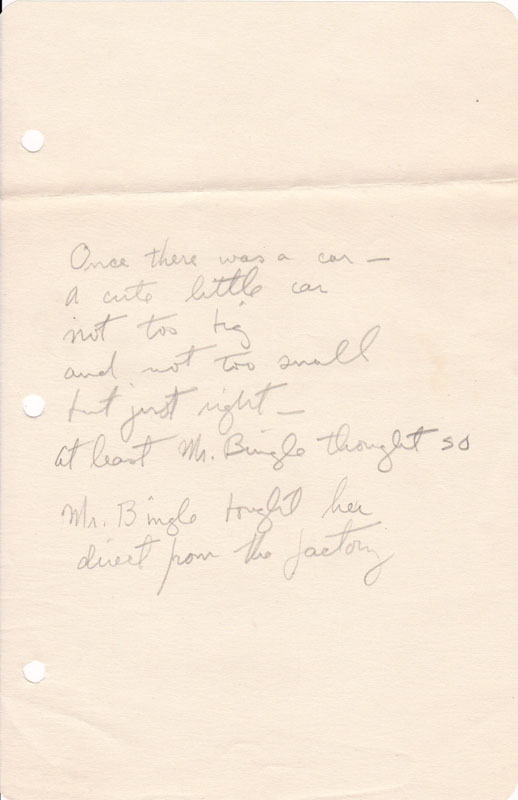 Once there was a car —
a cute little car
not too big
and not too small
but just right —
at least Mr. Bingle thought so
Mr. Bingle bought her
direct from the factory